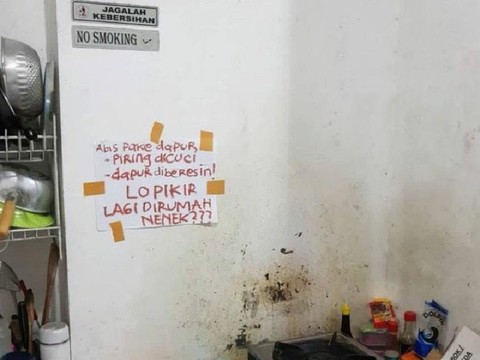 JAGALAH
KEBERSIHAN
NO SMOKING
Abis pake dapur,
- PIRING diCUCI
- dapur diberesin!
LO PIKIR
LAGI DIRUMAH
NENEK???